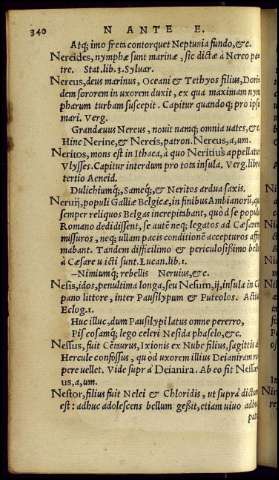 340 N ANTE E.
Atq; imo frem contorquet Neptunia fundo, &c.
Nereides, nymphæ sunt marinæ, sic dictæ à Nereo pa
tre. Stat.lib.3.Syluar.
Nereus, deus marinus, Oceani & Tethyos filius, Dori
dem sororem in vxorem duxit, ex qua maximam nym
pharum turbam suscepit. Capitur quandoq; pro ipso
mari. Verg.
Grandæuus Nereus, nouit namq; omnia vates, &c.
Hinc Nerine, & Nereis, patron. Nereus, a, um.
Neritos, mons est in Ithaca, à quo Neritius appellatur
Vlysses. Capitur interdum pro tota insula. Verg. libr
tertio Aeneid.
Dulichiumq;, Sameq;, & Neritos ardua saxis.
Neruij, populi Galliæ Belgicæ, in finibus Ambianorũ, qui
semper reliquos Belgas increpitabant, quòd se populo
Romano dedidissent, se autẽ neq; legatos ad Cæsarem
missuros, neq; ullam pacis conditionẽ accepturos affir
mabant. Tandem difficilimo & periculosissimo bello
à Cæsare uicti sunt. Lucan.lib.1.
–Nimiumq; rebellis Neruius, &c.
Nesis, idos, penultima longa, seu Nesium, ij, insula in Cam
pano littore, inter Pausilypum & Puteolos.
Eclog.1.
Huc illuc, dum Pausilypi latus omne pererro,
Piscosamq; lego celeri Nesida phaselo, &c.
Nessus, fuit Cẽtaurus, Ixionis ex Nube filius, sagittis ab
Hercule confossus, quòd vxorem illius Deianiram ra
pere uellet. Vide suprà Deianira. Ab eo fit Nessæ
us, a, um.
Nestor, filius fuit Nelei & Chloridis, ut suprà dictum
est: adhuc adolescens bellum gessit, etiam viuo adhuc